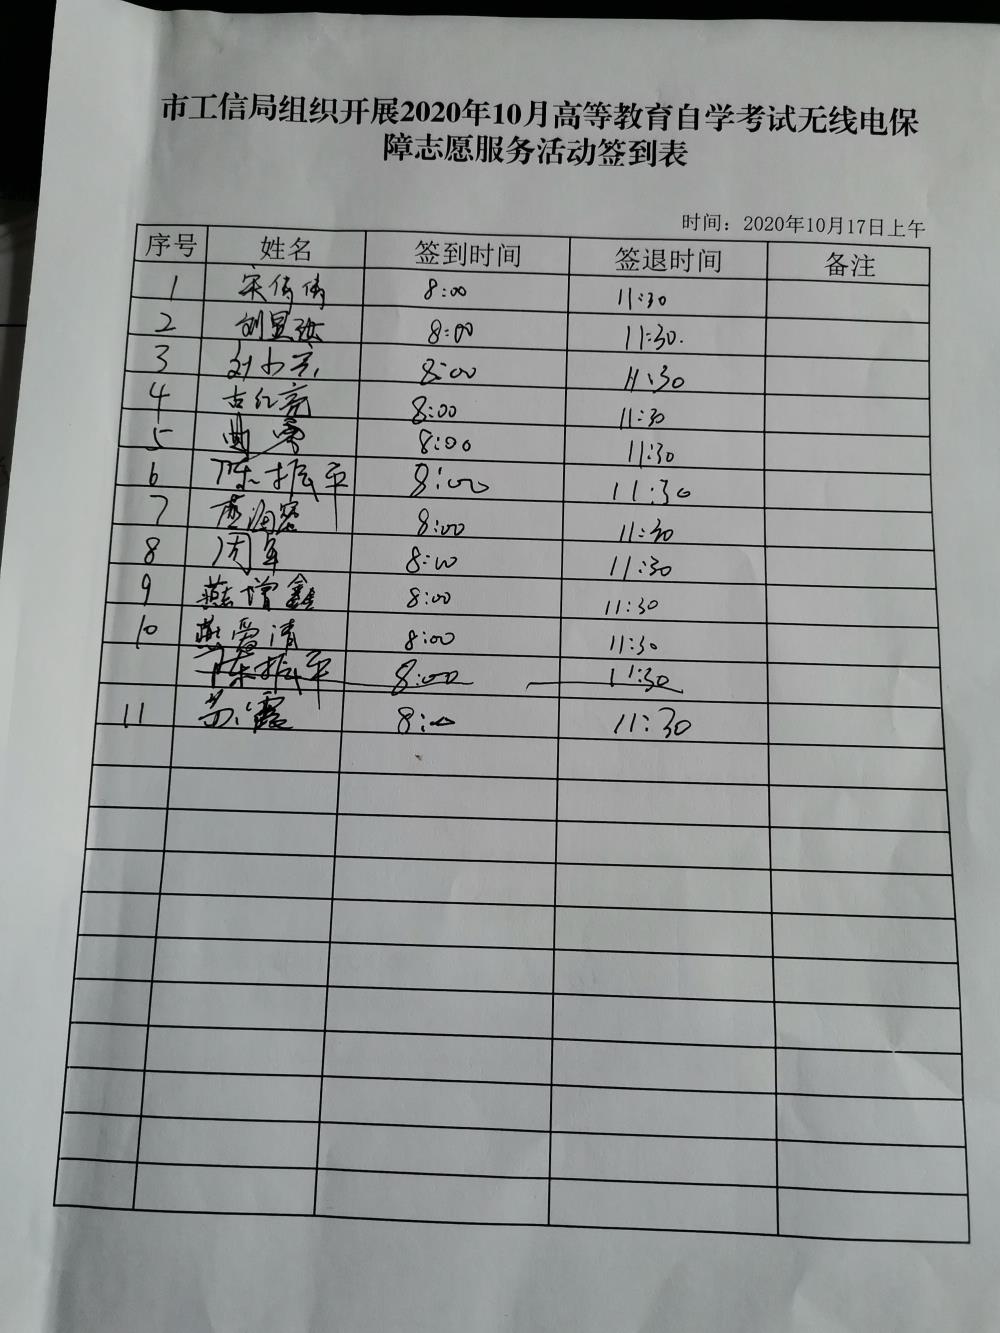 市工信局组织开展2020年10月高等教育自学考试无线电保
障志愿服务活动签到表
时间：2020年10月17日上午
序号 姓名 签到时间 签退时间 备注
1 宋倩倩 8:00 11:30
2 8:00 11:30.
3 8:00 11:30
4 古红亮 8:00 11:30
5 8:00 11:30
6 陈振平 8:00 11:30
7 8:00 11:30
8 周军 8:00 11:30
9 燕增鑫 8:00 11:30
10 8:00 11:30
陈振平 8:00 11:30
11 8:00 11:30